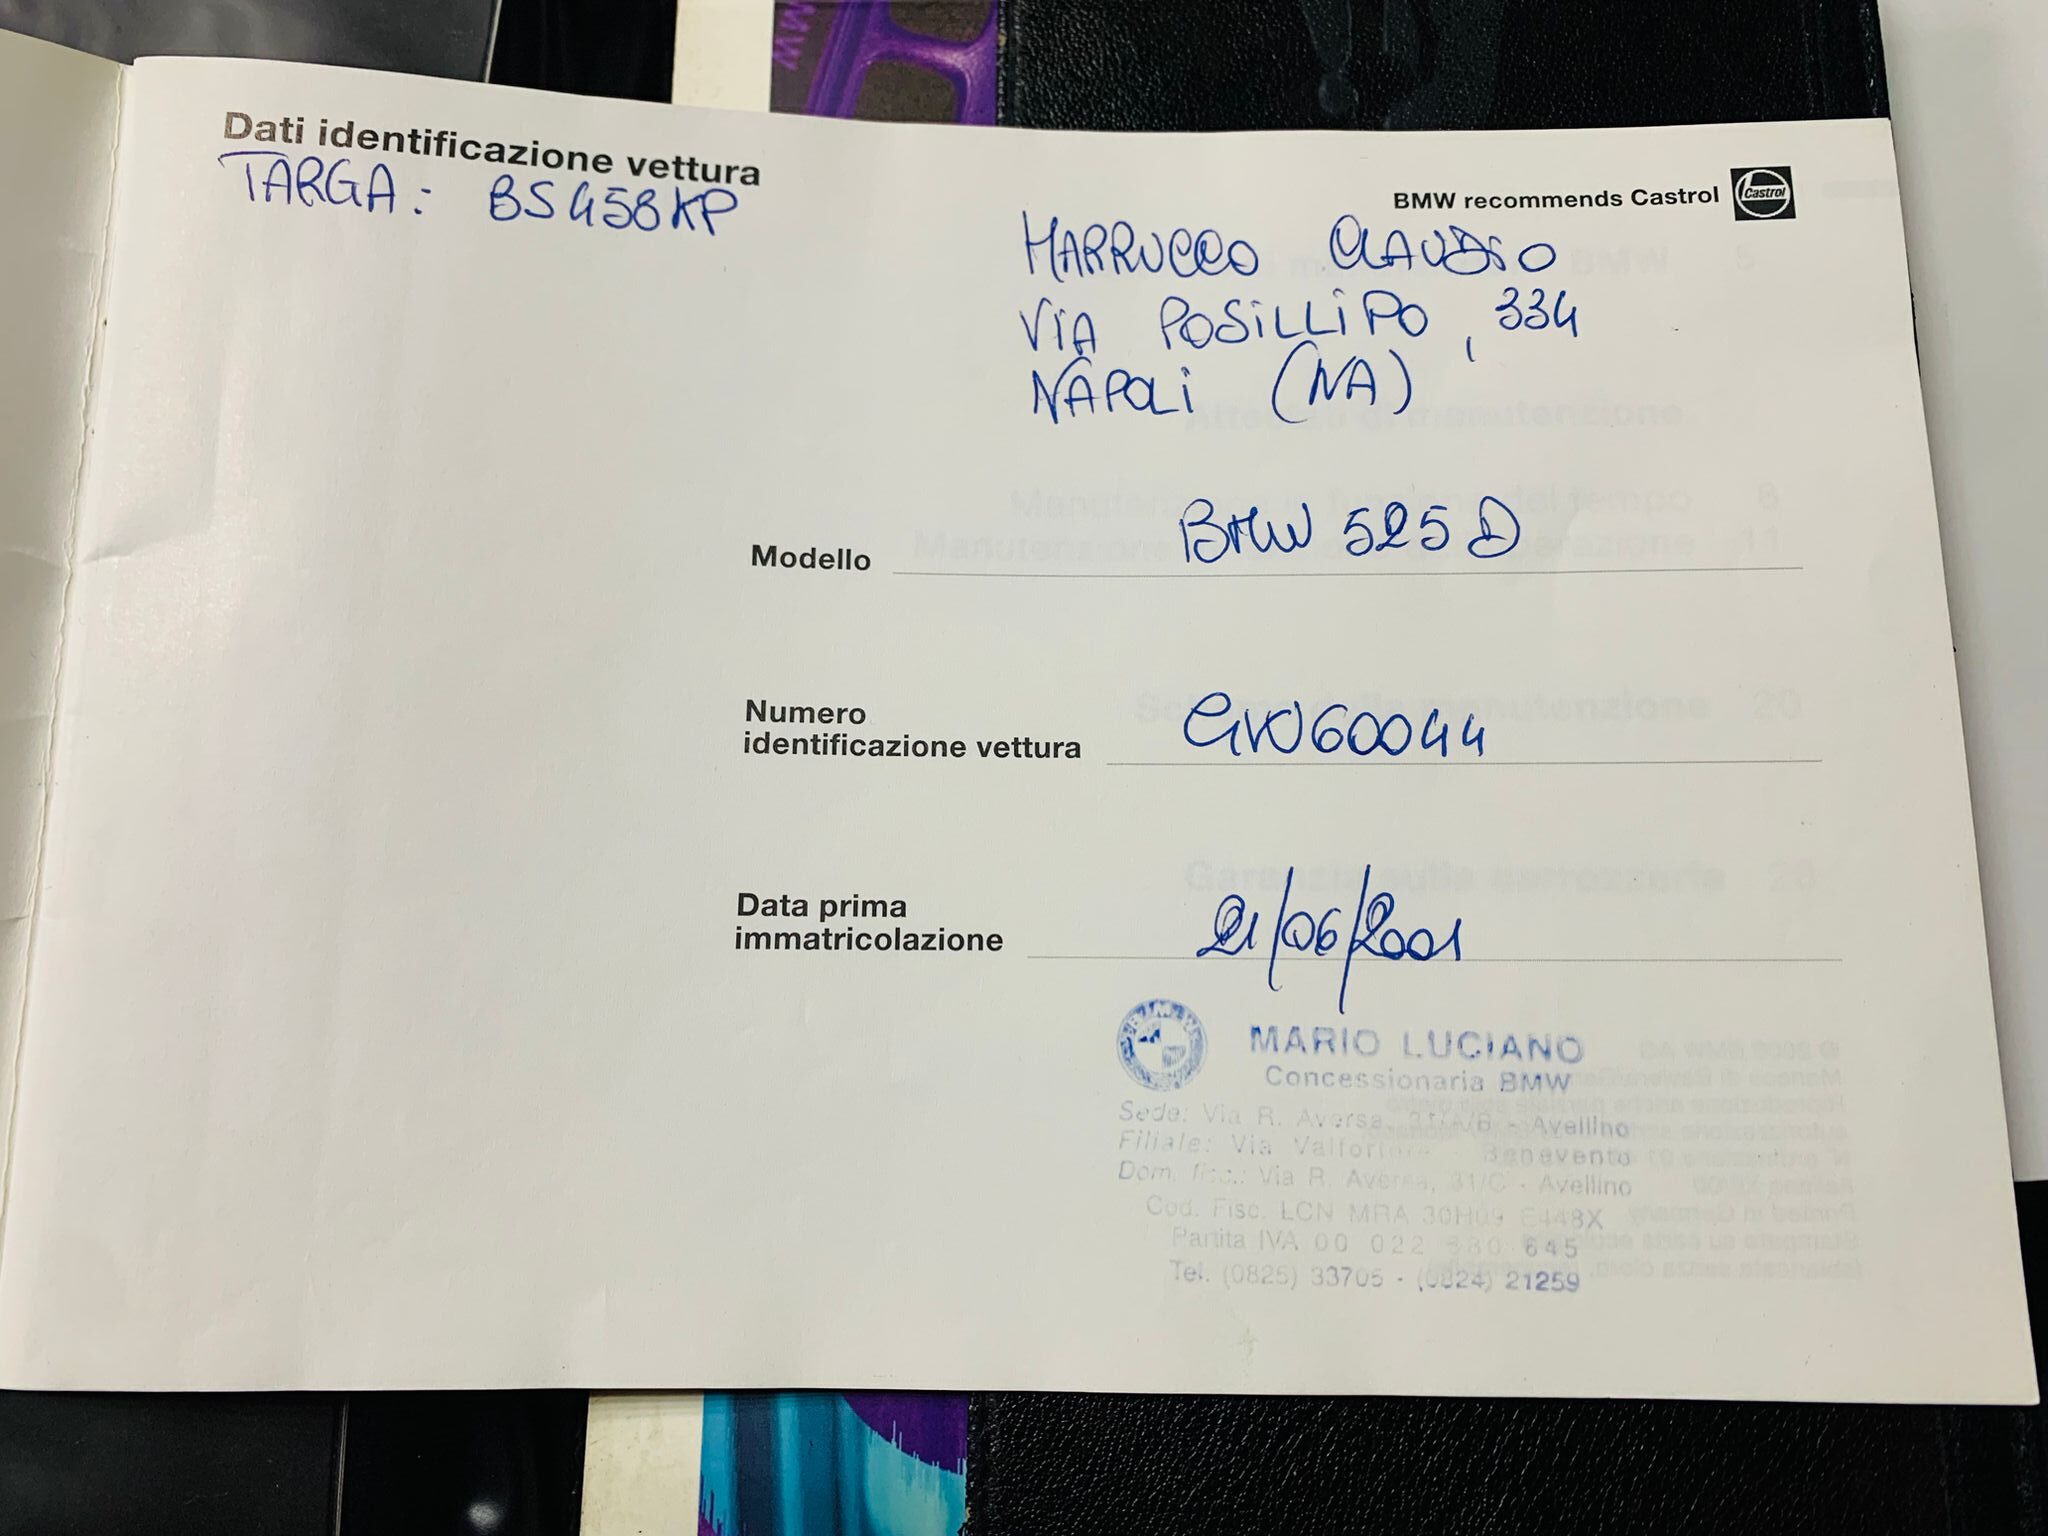 Dati identificazione vettura
TARGA: BS458KP
BMW recommends Castrol
Castrol
MARRUCCO CLAUDIO
VIA POSILLIPO, 334
NAPOLI (NA)
Modello BMW 525 D
Numero
identificazione vettura GV060044
Data prima
immatricolazione 21/06/2001
MARIO LUCIANO
Concessionaria BMW
Sede: Via R. Aversa, - Avellino
Filiale: Via - Benevento
Dom. fisc.: Via R. Aversa, 31/C - Avellino
Cod. Fisc. LCN MRA 30H09 E448X
Partita IVA 00 022 645
Tel. (0825) 33705 - (0824) 21259